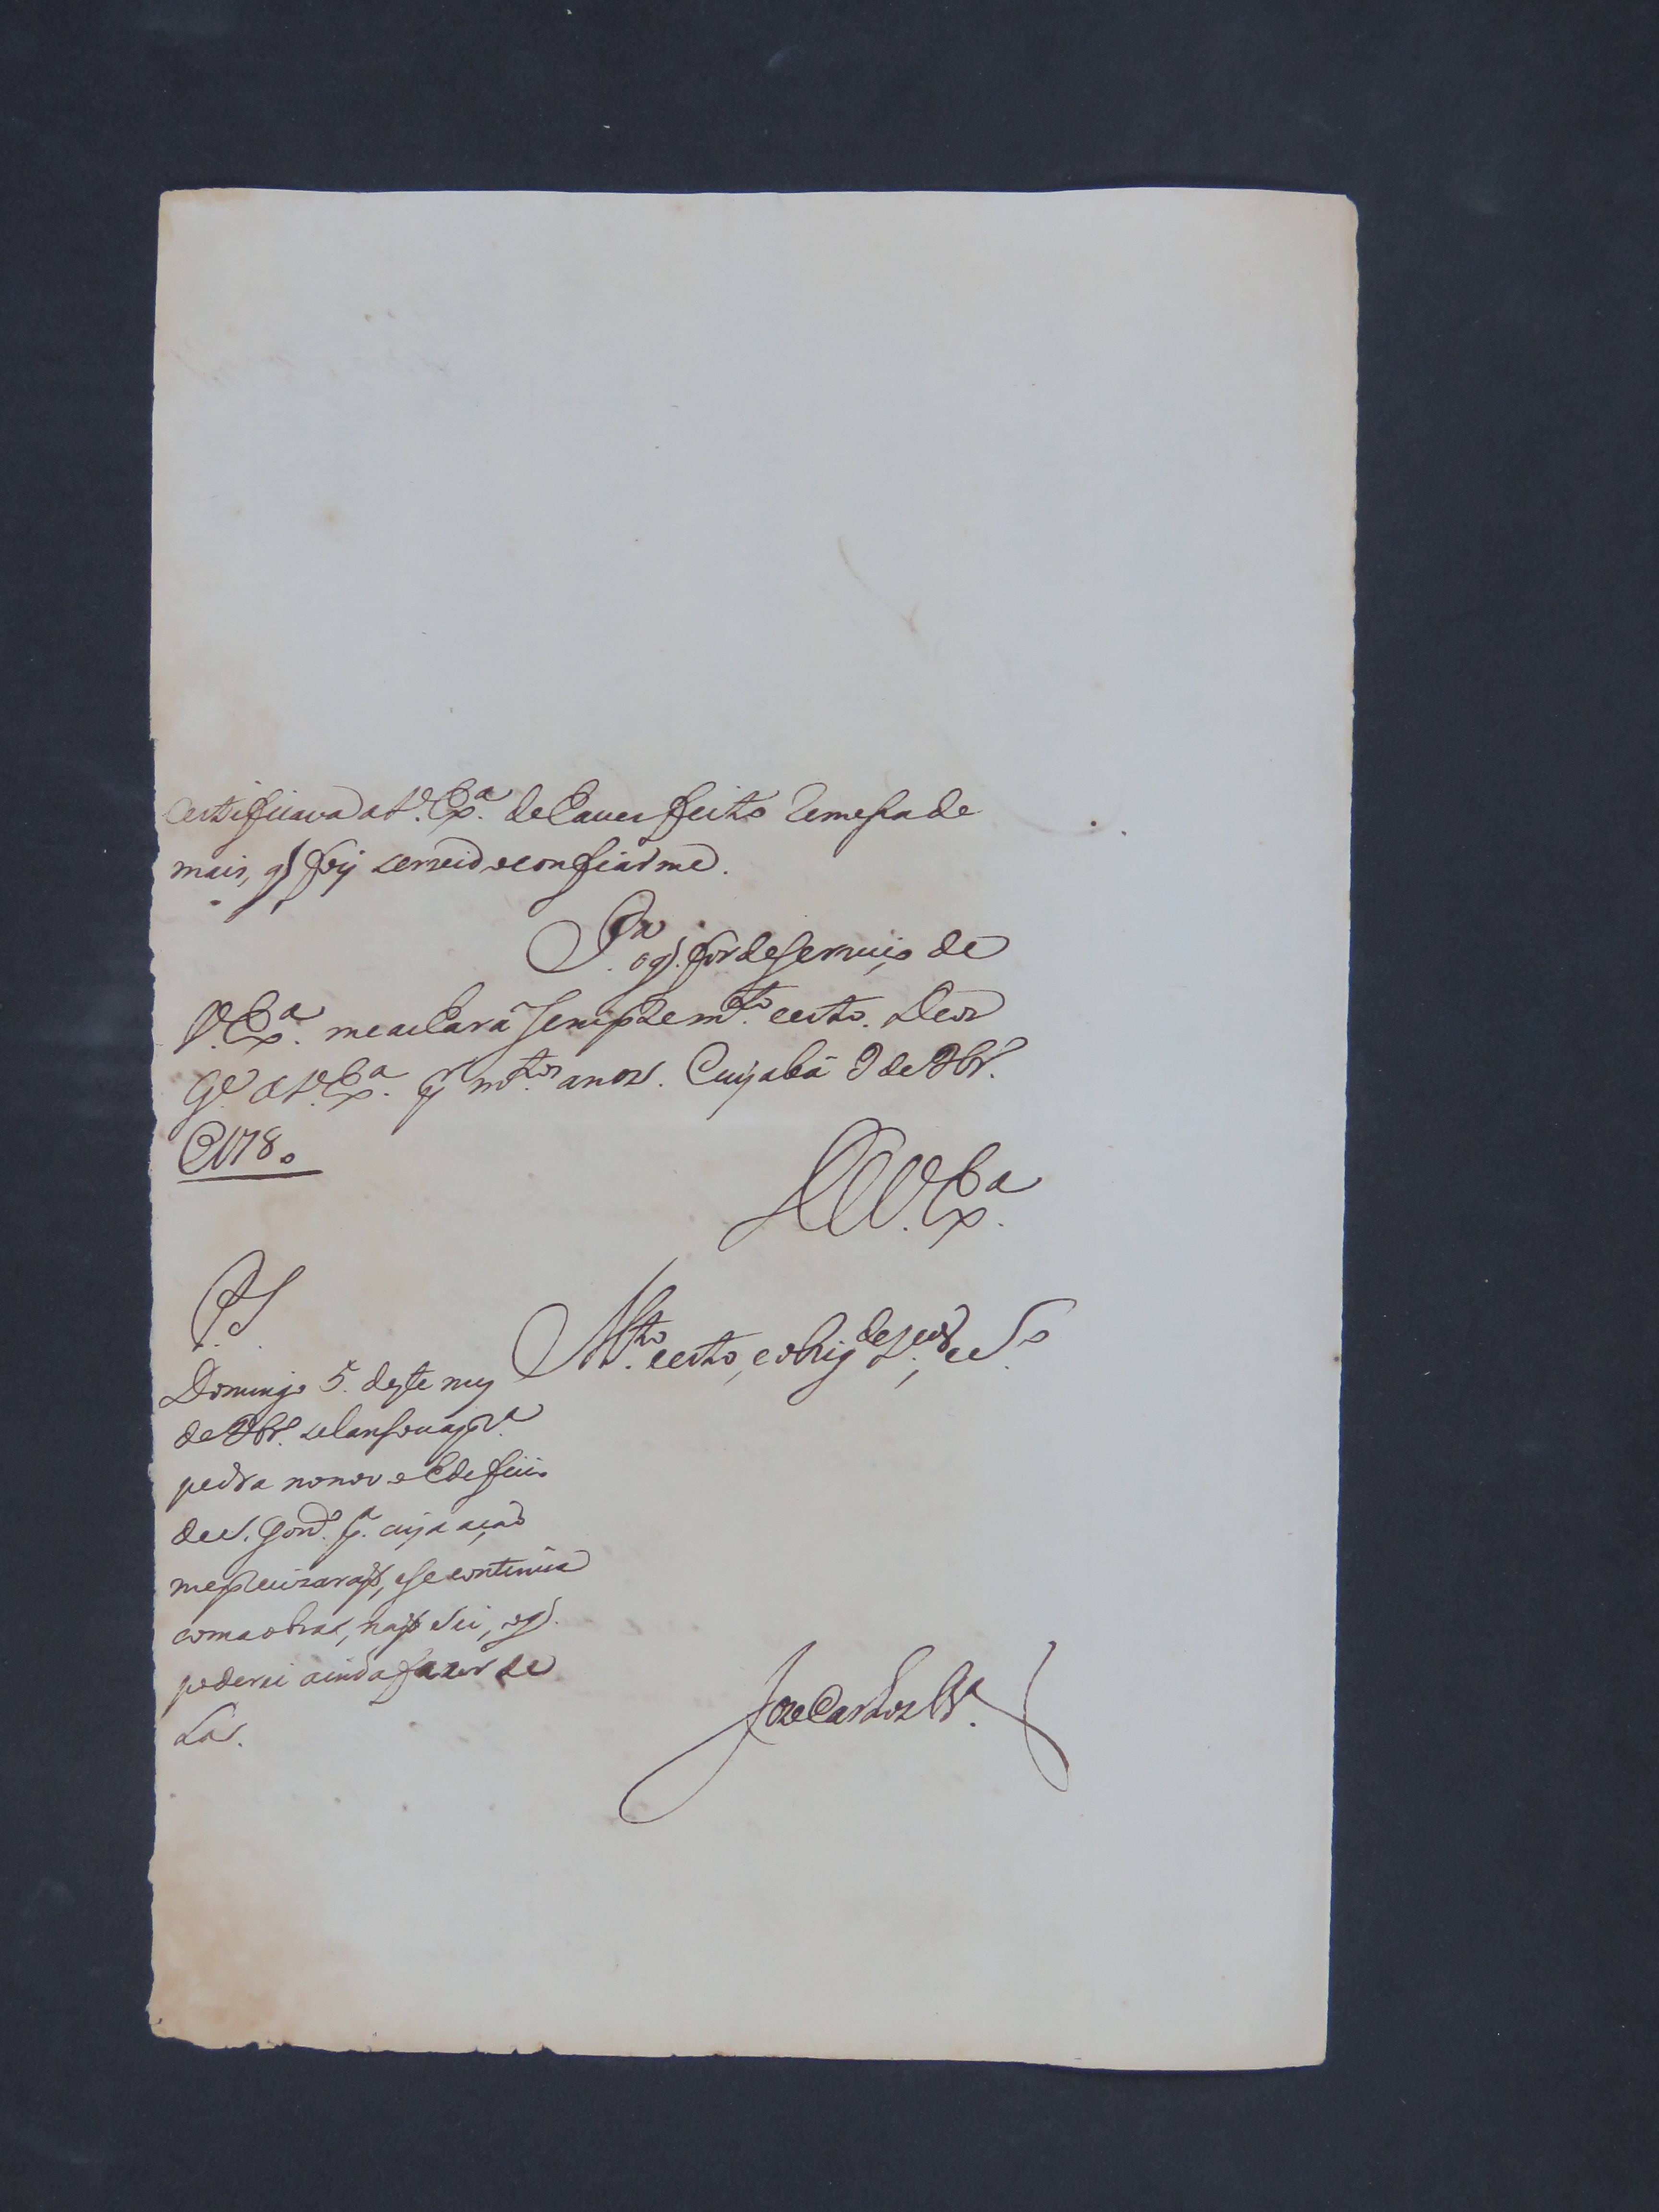 Certificava a V. Exa. de haver feito remessa de
mais, q. foy servido confiarme.
Pa. o q. for de serviço de
V. Exa. me achará sempre mto. certo. Deos
Ge. a V. Exa. ps. mtos. anos. Cuyabá 9 de 
De V. Exa.
P. S.
Mto. certo, e obrig
Domingo 5. deste mez
de se lansou a pra.
pedra no novo Edeficio
de S. Gonço. pa. cuja ação
me precizarão, e se continúa
com a obra, não sei, o q.
poderei ainda fazer de
Lá.
Joze Carlos Pra.